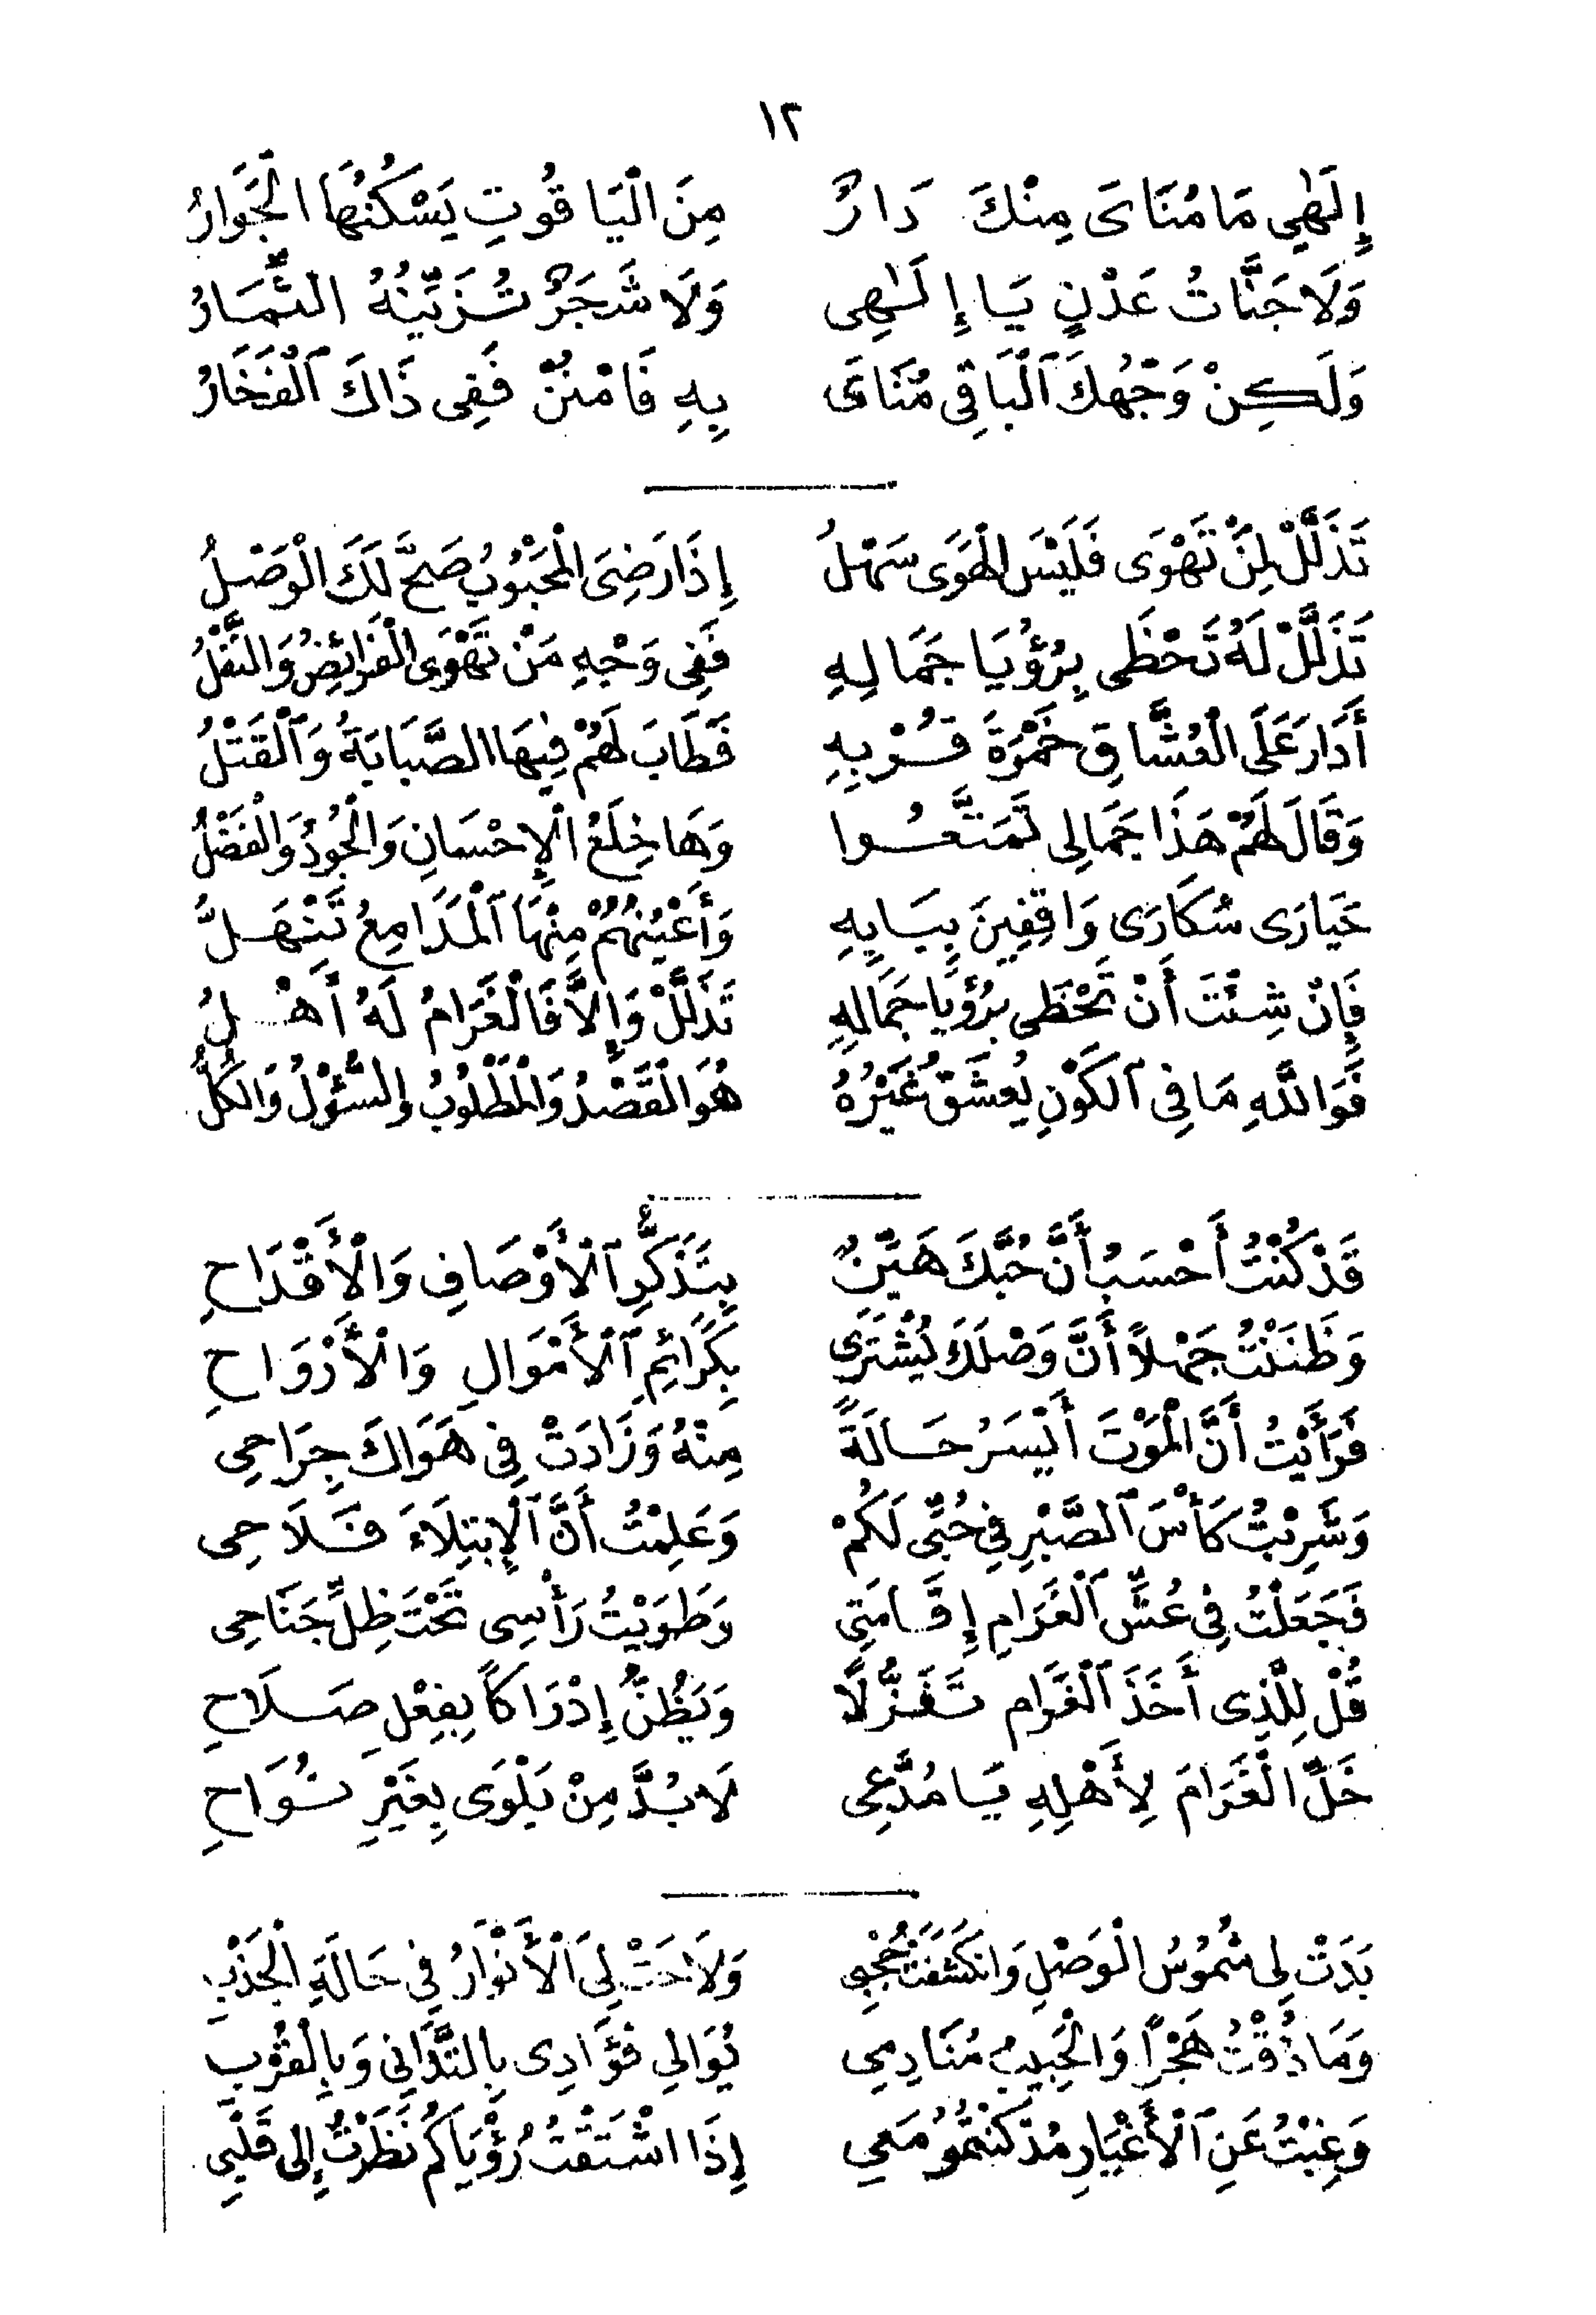 ١٢
إِلَهِي مَا مُنَاىَ مِنْكَ دَارٌ مِنَ الْيَاقُوتِ يَسْكُنُهَا الْجَوَارُ
وَلَا جَنَّاتُ عَدْنٍ يَا إِلَهِى وَلَا شَجَرٌ تُزَيِّنُهُ الثِّمَارُ
وَلَكِنْ وَجْهُكَ الْبَاقِى مُنَاىَ بِهِ فَامْنُنْ فَفِى ذَاكَ الْفَخَارُ
تَذَلَّلْ لِمَنْ تَهْوَى فَلَيْسَ الْهَوَى سَهْلُ إِذَا رَضِىَ الْمَحْبُوبُ صَحَّ لَكَ الْوَصْلُ
تَذَلَّلْ لَهُ تَحْظَى بِرُؤْيَا جَمَالِهِ فَفِى وَجْهِ مَنْ تَهْوَى الْفَرَائِضُ وَالنَّفْلُ
أَدَارَ عَلَى الْعُشَّاقِ خَمْرَةَ قُرْبِهِ فَطَابَ لَهُمْ فِيهَا الصَّبَابَةُ وَالْقَتْلُ
وَقَالَ لَهُمْ هَذَا جَمَالِى تَمَتَّعُوا وَهَا خِلَعُ الْإِحْسَانِ وَالْجُودُ وَالْفَضْلُ
حَيَارَى سُكَارَى وَاقِفِينَ بِبَابِهِ وَأَعْيُنُهُمْ مِنْهَا الْمَدَامِعُ تَنْهَلُّ
فَإِنْ شِئْتَ أَنْ تَحْظَى بِرُؤْيَا جَمَالِهِ تَذَلَّلْ وَإِلَّا فَالْغَرَامُ لَهُ أَهْلُ
فَوَاللَّهِ مَا فِى الْكَوْنِ يُعْشَقُ غَيْرُهُ هُوَ الْقَصْدُ وَالْمَطْلُوبُ وَالسُّؤْلُ وَالْكُلُّ
قَدْ كُنْتُ أَحْسَبُ أَنَّ حُبَّكَ هَيِّنٌ بِتَذَكُّرِ الْأَوْصَافِ وَالْأَقْدَاحِ
وَظَنَنْتُ جَهْلاً أَنَّ وَصْلَكَ يُشْتَرَى بِكَرَائِمِ الْأَمْوَالِ وَالْأَرْوَاحِ
فَرَأَيْتُ أَنَّ الْمَوْتَ أَيْسَرُ حَالَةً مِنْهُ وَزَادَتْ فِى هَوَاكَ جِرَاحِى
وَشَرِبْتُ كَأْسَ الصَّبْرِ فِى حُبِّى لَكُمْ وَعَلِمْتُ أَنَّ الْإِبْتِلَاءَ فَلَاحِى
فَجَعَلْتُ فِى عُشِّ الْغَرَامِ إِقَامَتِى وَطَوَيْتُ رَأْسِى تَحْتَ ظِلِّ جَنَاحِى
قُلْ لِلَّذِى أَخَذَ الْغَرَام تَغَزُّلًا وَيَظُنُّ إِدْرَاكاً بِفِعْلِ صَلَاحِ
خَلِّ الْغَرَامَ لِأَهْلِهِ يَا مُدَّعِى لَا بُدَّ مِنْ بَلْوَى بِغَيْرِ نُوَاحِ
بَدَتْ لِى شُمُوسُ الْوَصْلِ وَانْكَشَفَتْ حُجْبِى وَلَاحَتْ لِىَ الْأَنْوَارُ فِى حَالَةِ الْجَذْبِ
وَمَا ذُقْتُ هَجْراً وَالْحَبِيبُ مُنَادِمِى يُوَالِى فُؤَادِى بِالتَّدَانِى وَبِالْقُرْبِ
وَغِبْتُ عَنِ الْأَغْيَارِ مُذْ كُنْتُمُو مَعِى إِذَا اشْتَقْتُ رُؤْيَاكُمْ نَظَرْتُ إِلَى قَلْبِى